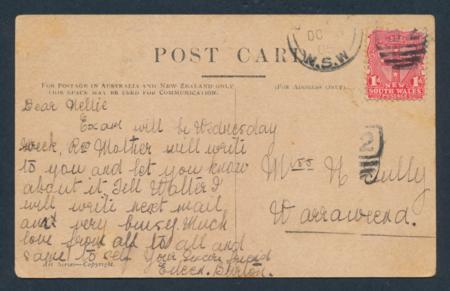 OC
05
N.S.W
POST CARD
1d 1d
NEW
SOUTH WALES
POSTAGE
FOR POSTAGE IN AUSTRALIA AND NEW ZEALAND ONLY
THIS SPACE MAY BE USED FOR COMMUNICATION.
(FOR ADDRESS ONLY)
Dear Nellie
Exam will be Wednesday
week, Rev Mother will write
to you and let you know
about it. Tell Walter I
will write next mail
am very busy. Much
love from all to all and
same to self Your loving friend
Eileen
Art Series—Copyright.
2
Miss N Tully
Warraweena.